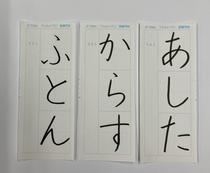 あした
からす
ふとん